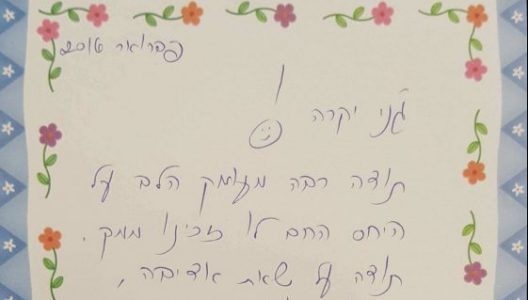 פברואר 2016
ג'ני יקרה !
תודה רבה מעומק הלב על
היחס החם לו זכינו ממך.
תודה על שאת אדיבה,